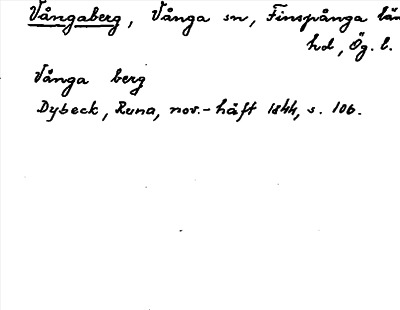 Vångaberg, Vånga sn, Finspånga län
hd, Ög. l.
Vånga berg
Dybeck, Runa, nov.-häft 1844, s. 106.